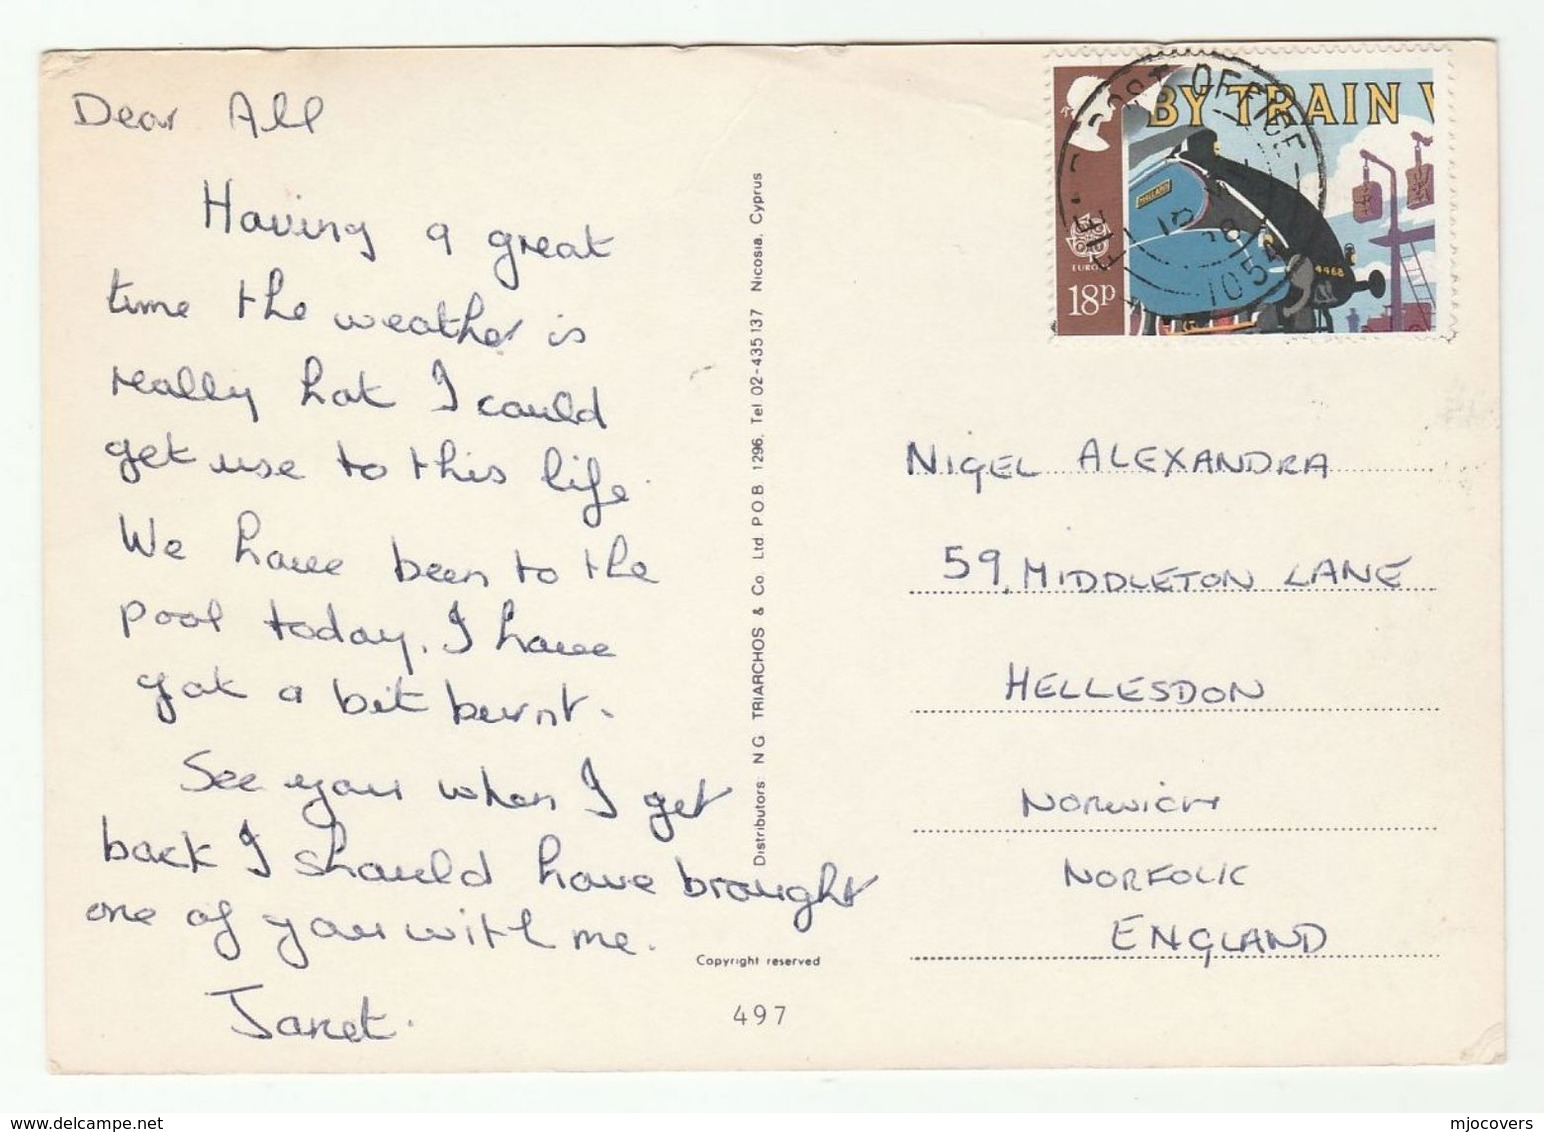 Dear All
Having a great
time the weather is
really hot I could
get use to this life.
We have been to the
pool today. I have
got a bit burnt.
See you when I get
back I should have brought
one of you with me.
Janet.
Distributors N G TRIARCHOS & Co. Ltd P.O.B 1296, Tel 02-435137 Nicosia, Cyprus
Copyright reserved
497
BY TRAIN
MALLARD
4468
EUROPA
18p
POST OFFICE
1054
NIGEL ALEXANDRA
59, MIDDLETON LANE
HELLESDON
NORWICH
NORFOLK
ENGLAND
www.delcampe.net
mjocovers